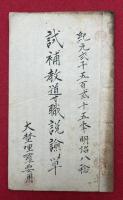 紀元弐千五百弐十五年明治八稔
試補教導職説諭草
大𫝆理